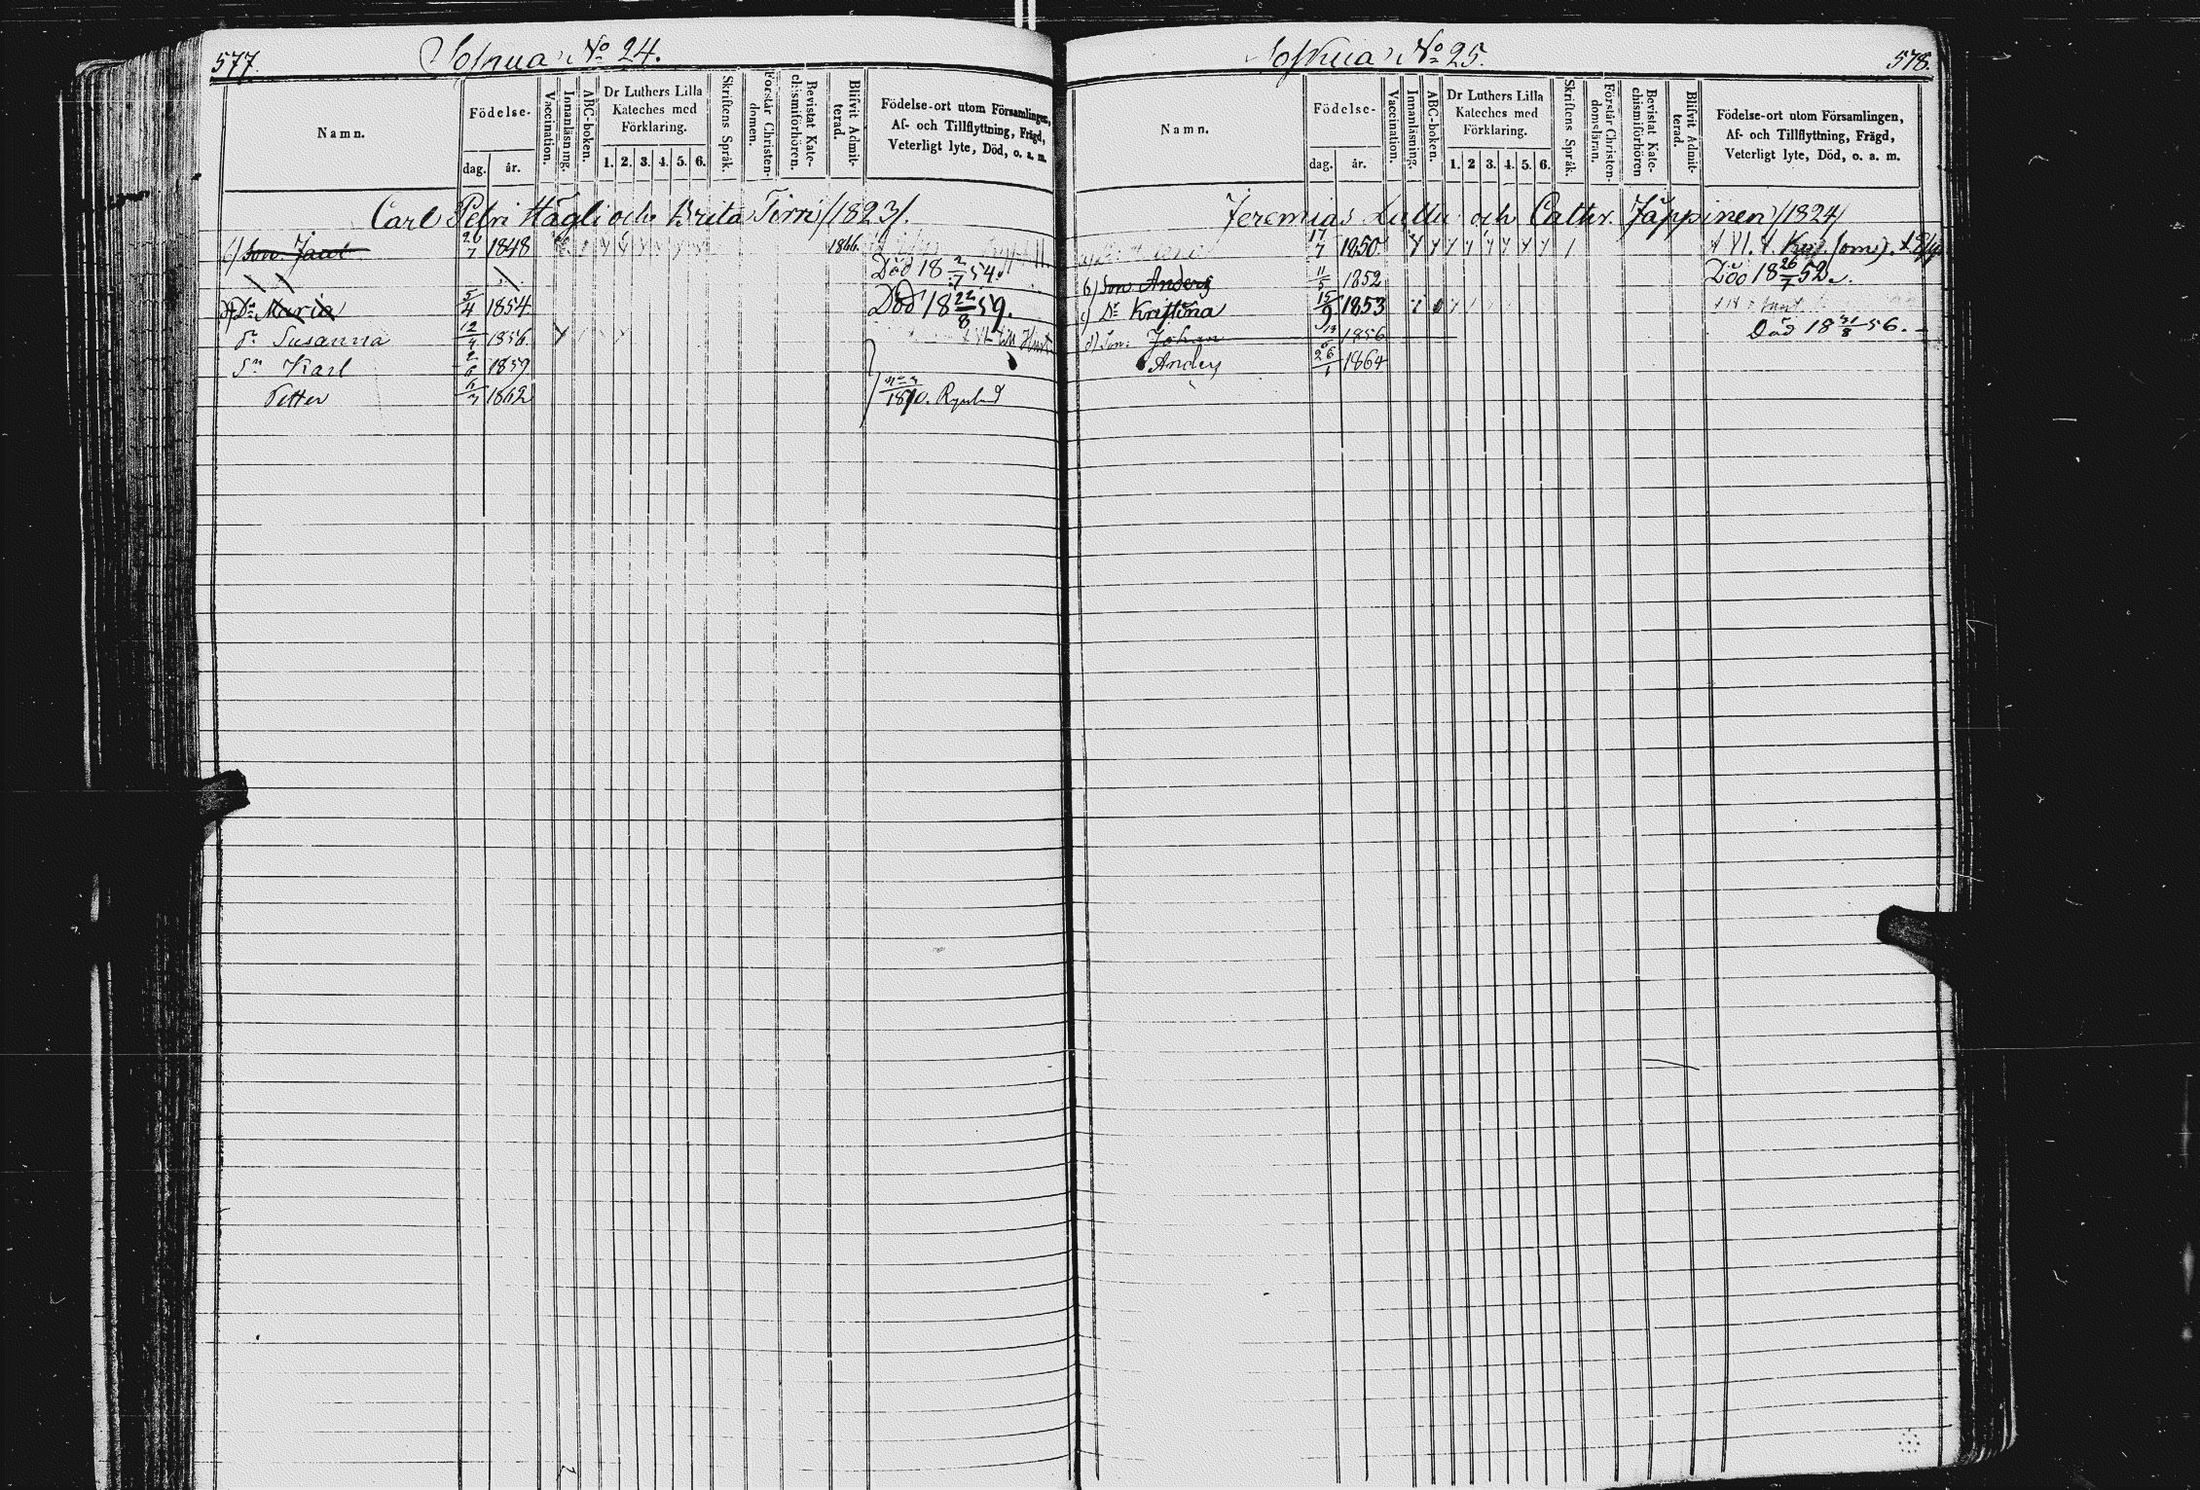 577.
No 24.
Namn.
Födelse-
dag.
år.
Vaccination.
Innanläsning.
ABC-boken.
Dr Luthers Lilla
Kateches med
Förklaring.
1. 2. 3. 4. 5. 6.
Skriftens Språk.
Förstår Christen-
domen.
Bevistat Kate-
chismiförhören.
Blifvit Admit-
terad.
Födelse-ort utom Församlingen,
Af- och Tillflyttning, Frägd,
Veterligt lyte, Död, o. a. m.
Carl Petri Hägli och Brita Tirri /1823/.
Son Jacob 26/7 1848 1866
Död 18 2/7 54.
Dr Maria 5/4 1854 Död 18 22/8 59.
Dr Susanna 12/4 1856
Sn Karl 1859
Petter 1862
1870.
578.
No 25.
Namn.
Födelse-
dag.
år.
Vaccination.
Innanläsning.
ABC-boken.
Dr Luthers Lilla
Kateches med
Förklaring.
1. 2 3. 4. 5. 6.
Skriftens Språk.
Förstår Christen-
domsläran.
Bevistat Kate-
chismiförhören
Blifvit Admit-
terad.
Födelse-ort utom Församlingen,
Af- och Tillflyttning, Frägd,
Veterligt lyte, Död, o. a. m.
Jeremias och Cathr. Jäppinen /1824/
17/7 1850
b) Son Anders 11/5 1852 Död 18 26/7 52.
c) Dr Kristina 15/9 1853
d) Son Johan 1856 Död 18 31/8 56.
Anders 26/1 1864